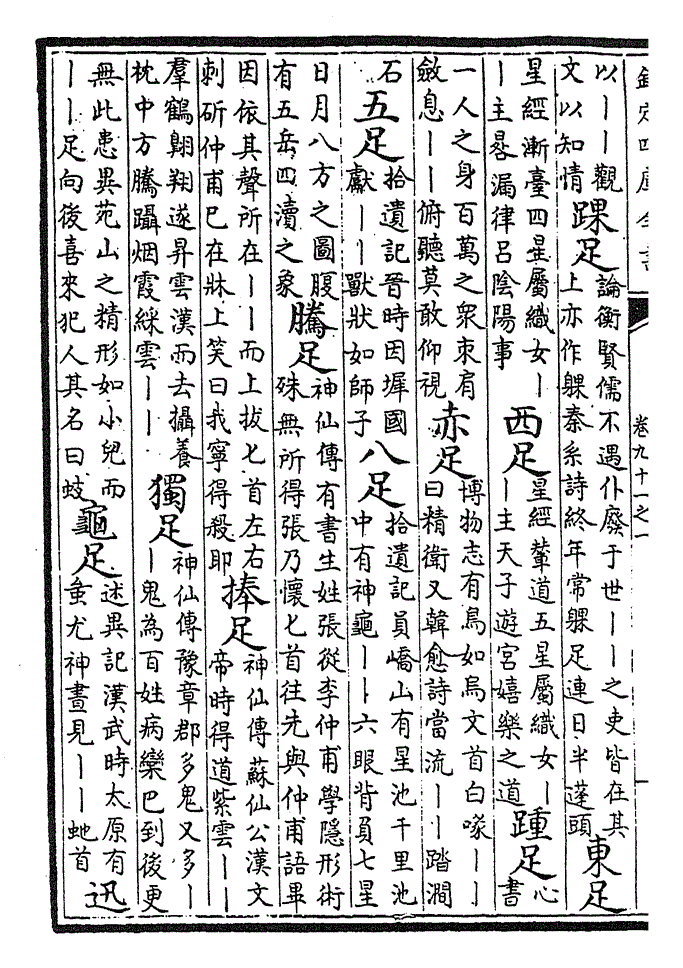 欽定四庫全書
卷九十一之一
以丨丨觀
文以知情
踝足
論衡賢儒不遇仆廢于世丨丨之吏皆在其
上亦作躶秦系詩終年常躶足連日半蓬頭
東足
星經漸臺四星屬織女丨
丨主晷漏律呂陰陽事
西足
星經輦道五星屬織女丨
丨主天子遊宮嬉樂之道
踵足
心
書
一人之身百萬之衆束肩
斂息丨丨俯聽莫敢仰視
赤足
博物志有鳥如烏文首白喙丨丨
曰精衛又韓愈詩當流丨丨踏澗
石
五足
拾遺記晉時因墀國
獻丨丨獸狀如師子
八足
拾遺記員嶠山有星池千里池
中有神龜丨丨六眼背負七星
日月八方之圖腹
有五岳四瀆之象
騰足
神仙傳有書生姓張從李仲甫學隱形術
殊無所得張乃懷匕首往先與仲甫語畢
因依其聲所在丨丨而上拔匕首左右
刺斫仲甫已在牀上笑曰我寧得殺耶
捧足
神仙傳蘇仙公漢文
帝時得道紫雲丨丨
羣鶴翺翔遂昇雲漢而去攝養
枕中方騰躡烟霞綵雲丨丨
獨足
神仙傳豫章郡多鬼又多丨
丨鬼為百姓病欒巴到後更
無此患異苑山之精形如小兒而
丨丨足向後喜來犯人其名曰蚑
龜足
述異記漢武時太原有
蚩尤神晝見丨丨虵首
迅